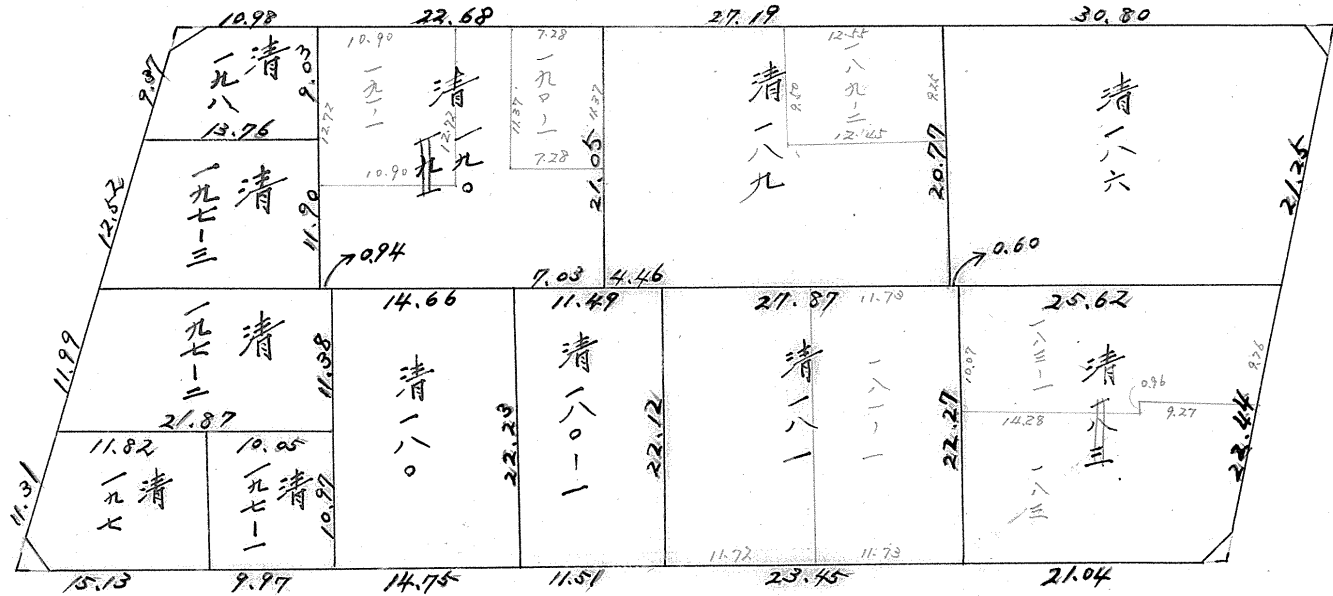 10.98
22.68
27.19
30.80
9.37
清
一九八
9.03
13.76
10.90
一九一-一
12.72
12.72
10.90
清
一九〇
一九一
7.28
一九〇-一
11.37
11.37
7.28
21.05
清
一八九
12.55
一八九-二
9.50
9.25
12.45
20.77
清
一八六
21.25
12.52
清
一九七-三
11.90
0.94
7.03
4.46
0.60
11.99
清
一九七-二
11.38
21.87
14.66
清
一八〇
22.23
11.49
清
一八〇-一
22.12
27.87
11.73
清
一八一
一八一-一
22.27
25.62
一八三-一
清
一八三
10.07
0.96
9.76
14.28
9.27
一八三
22.44
11.82
清
一九七
11.31
10.05
清
一九七-一
10.97
11.72
11.73
15.13
9.97
14.75
11.51
23.45
21.04